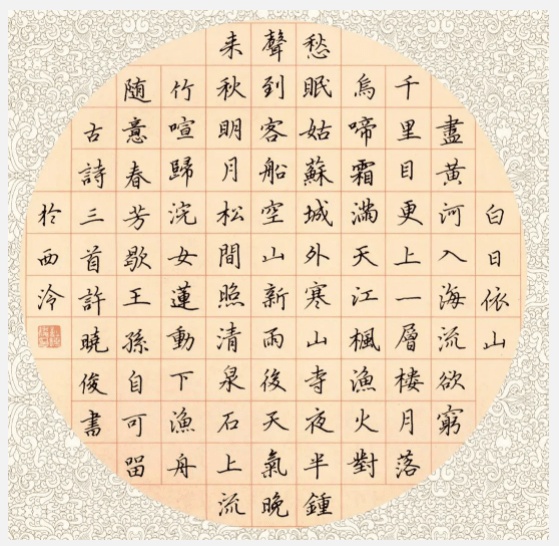 白日依山
盡黃河入海流欲窮
千里目更上一層楼月落
烏啼霜滿天江楓漁火對
愁眠姑蘇城外寒山寺夜半鍾
聲到客船空山新雨後天氣晚
来秋明月松間照清泉石上流
竹喧歸浣女蓮動下漁舟
随意春芳歇王孫自可留
古詩三首許曉俊書
於西泠